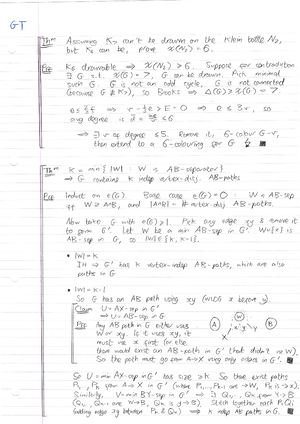 GT
Thm Assuming K7 can't be drawn on the Klein bottle N2,
but K6 can be, prove χ(N2) = 6.
Pf K6 drawable ⇒ χ(N2) ≥ 6. Suppose for contradiction
∃ G s.t. χ(G) = 7, G can be drawn. Pick minimal
such G. G is not an odd cycle, G is not connected
(because G ≠ K7), so Brooks ⇒ Δ(G) ≥ χ(G) = 7
so
avg degree is
⇒ ∃ v of degree ≤ 5. Remove it, 6-colour G-v,
then extend to a 6-colouring for G
Thm k = min { |W| : W is AB-separator }
⇒ G contains k indep vertex-disj. AB-paths
Pf Induct on e(G). Base case e(G) = 0 : W is AB-sep
iff
AB-paths.
Now take G with e(G) ≥ 1. Pick any edge xy & remove it
to form G'. Let W be a min AB-sep in G'.
AB-sep in G, so
• |W| = k
IH ⇒ G' has k vertex-indep AB-paths, which are also
paths in G
• |W| = k-1
So G has an AB path using xy (WLOG x before y).
Claim U = AX-sep in G'
⇒ U = AB-sep in G
Pf Any AB path in G either uses
W or xy. If it uses xy, it
must use x first (or else
there would exist an AB-path in G' that didn't use W).
So the path must go from A → X using only edges in G'.
A
B
So U = min AX-sep in G' has size ≥ k. So there exist paths
Similarly,
Stitch together each Pi Qi
(adding edge xy between Pk & Qk) ⇒ k indep AB paths in G.